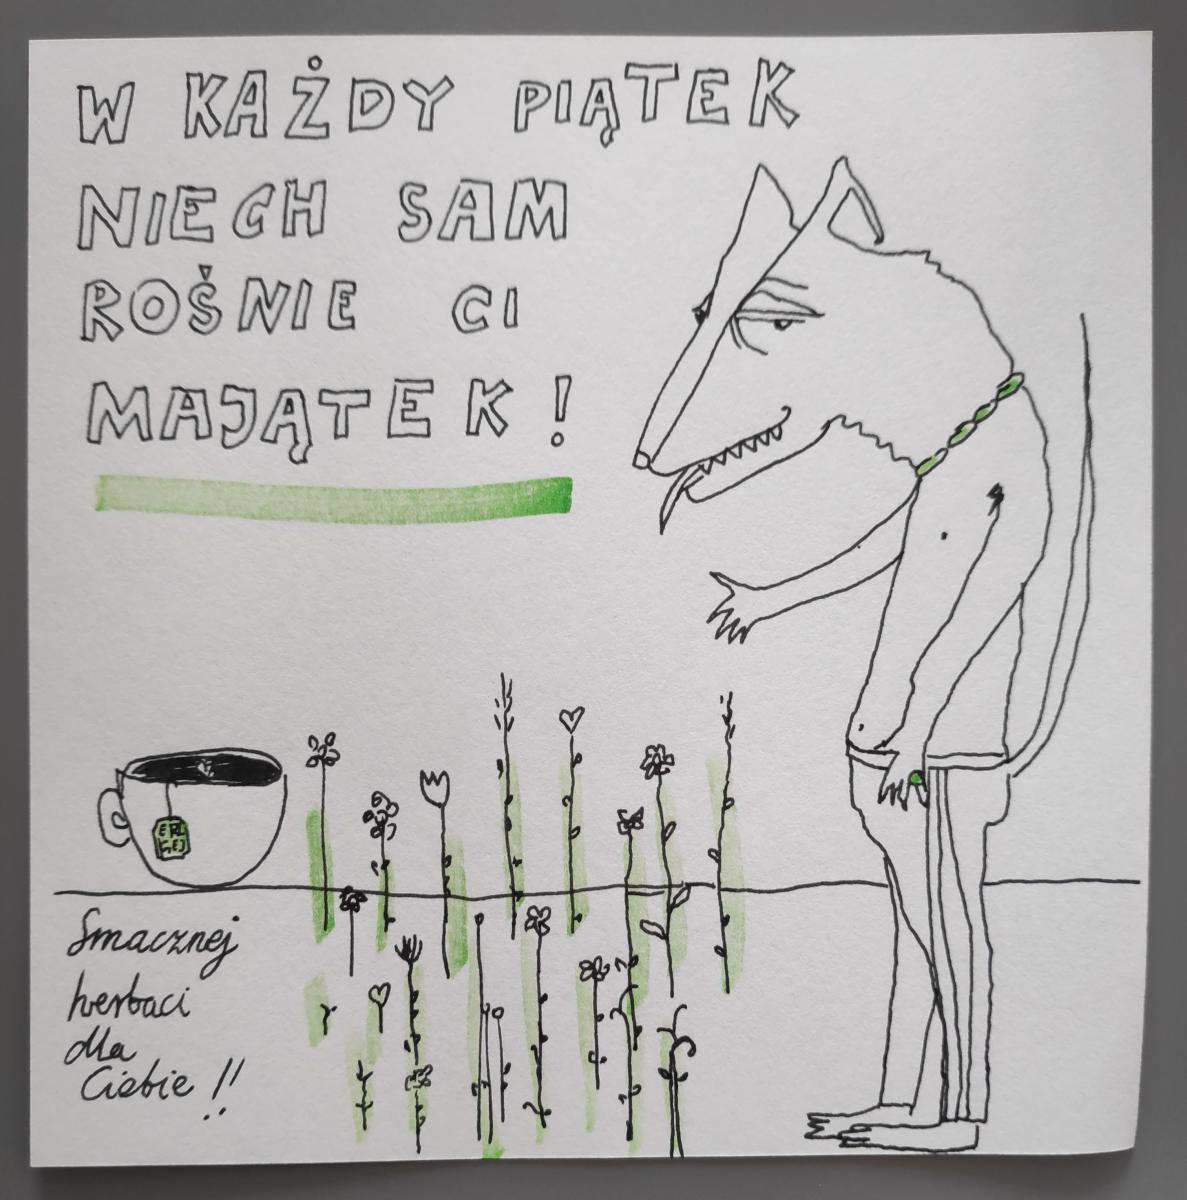 W KAŻDY PIĄTEK
NIECH SAM
ROŚNIE CI
MAJĄTEK!
ERL
GEJ
Smacznej
herbaci
dla
Ciebie!!